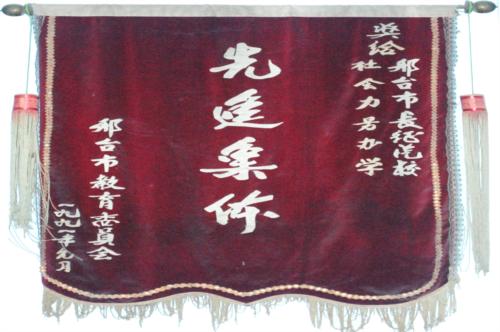 奖给
邢台市長征校
社会力量办学
先進集体
邢台市教育委員会
一九九一年元月